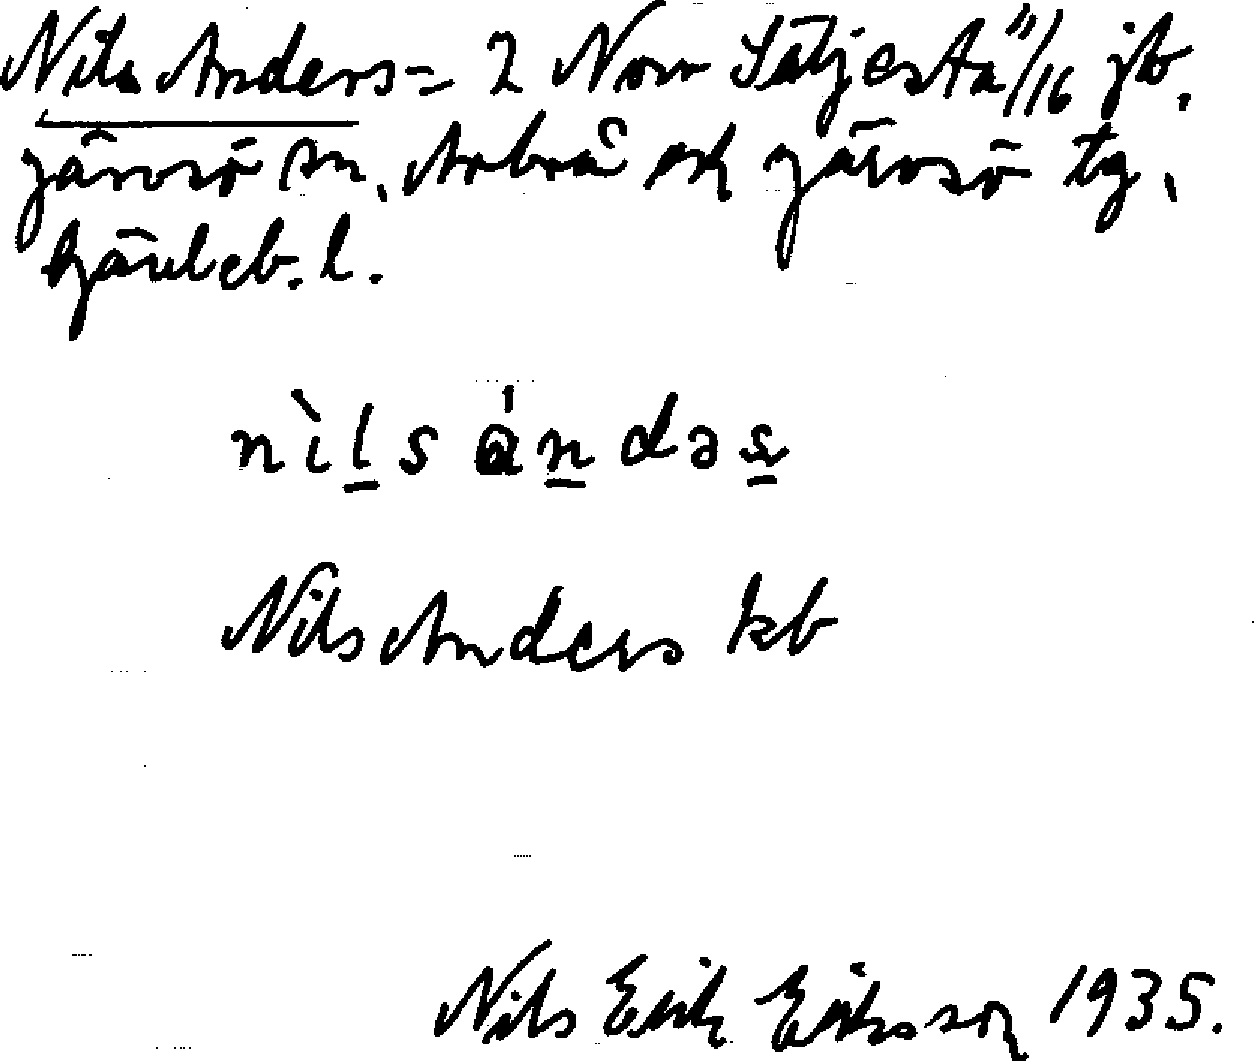 Nils Anders = 2 Norr Säljesta 11/16 jb.
Järvsö sn, Arbrå ock Järvsö tg,
Gävleb. l.
nìlsándəs
Nils Anders kb
Nils Erik Eriksson 1935.